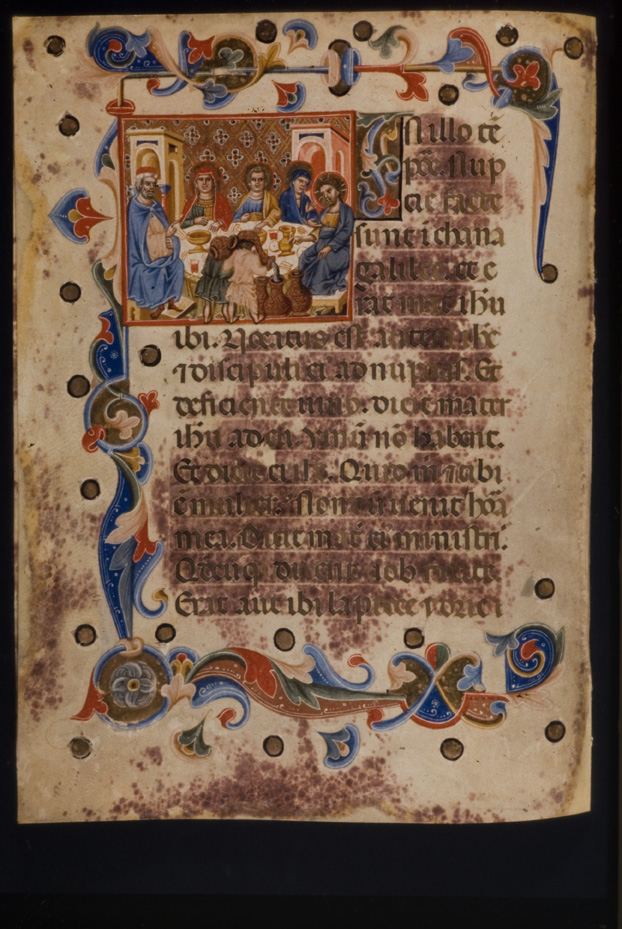 In illo tẽ
põe. Nup
cie facte
sunt i chana
galilee. et e
rat mater ihũ
ibi. Uocatus est autem ihe
⁊ discipuli ei ad nuptias. Et
deficiente uino. dicit mater
ihũ ad eũ. Uinũ nõ habent.
Et dicit ei ihs. Quid m ⁊ tibi
ẽ mulier. nondum uenit hora
mea. Dicit mat̃ ei ministri.
Qdcũq dixerit uob facite
Erat aut ibi lapidee ydrie i